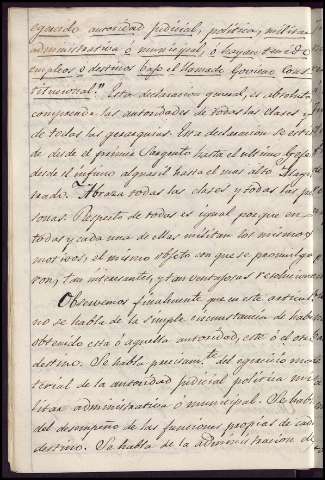 egercido autoridad judicial, politica, militar
administrativa ó municipal, ó hayan tenido
empleos ó destinos bajo el llamado Govierno Cons
titucional." Esta declaracion general, es absoluta
comprende las autoridades de todas las clases y
de todas las gerarquias. Esta declaracion se estien
de desde el primer Sargento hasta el ultimo Gefe
desde el infimo alguacil hasta el mas alto Magis
trado. Abraza todas las clases y todas las per
sonas. Respecto de todas es igual porque en
todas y cada una de ellas militan los mismos
motivos, el mismo objeto con que se promulga
ron, tan interesantes, y tan ventajosas resoluciones
Observemos finalmente que en este articulo
no se habla de la simple circunstancia de haber
obtenido esta ó aquella autoridad, este ó el otro
destino. Se habla precisam.te del egercicio ma
terial de la autoridad judicial politica mi
litar administrativa ó municipal. Se habla
del desempeño de las funciones propias de cada
destino. Se habla de la administracion de